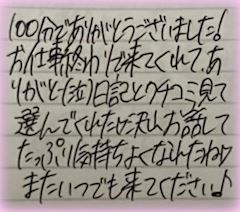 100分でありがとうございました!
お仕事終わりで来てくれてあ
りがと(泣)日記とクチコミ見て
選んでくれたから沢山お話して
たっぷり気持ちよくなれたねゆ
またいつでも来てください♪